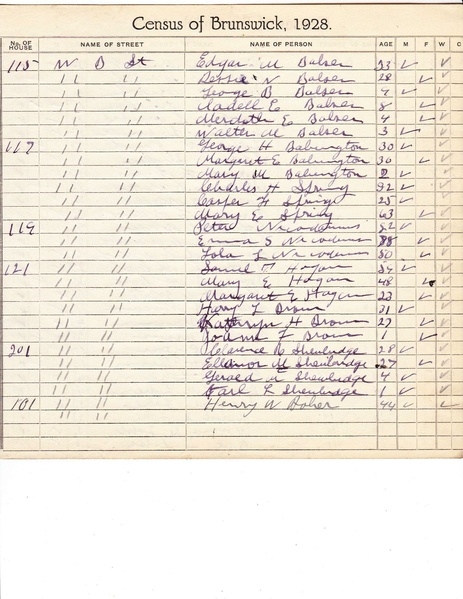 Census of Brunswick, 1928.
No. OF HOUSE NAME OF STREET NAME OF PERSON AGE M F W C
115 W B St Edgar M Balser 33 ✓ ✓
" " Bessie V Balser 28 ✓ ✓
" " George B Balser 7 ✓ ✓
" " E Balser 8 ✓ ✓
" " Meredith E Balser 4 ✓ ✓
" " Walter M Balser 3 ✓ ✓
117 " " George H Babington 30 ✓ ✓
" " Margaret E Babington 30 ✓ ✓
" " Mary M Babington 2 ✓ ✓
" " Charles H Spring ✓ ✓
" " Casper H Spring 25 ✓ ✓
" " Mary E Spring 63 ✓ ✓
119 " " Peter Nicodemus 82 ✓ ✓
" " Emma S Nicodemus 88 ✓ ✓
" " Lola L Nicodemus 50 ✓ ✓
121 " " T Hagan 54 ✓ ✓
" " Mary E Hagan 48 ✓ ✓
" " Margaret E Hagan 23 ✓ ✓
" " Harry L Brown 31 ✓ ✓
" " Kathryn H Brown 27 ✓ ✓
" " F Brown 1 ✓ ✓
201 " " Clarence R Shewbridge 28 ✓ ✓
" " Elleanor M Shewbridge 27 ✓ ✓
" " Gerald Shewbridge 4 ✓ ✓
" " Earl L Shewbridge 1 ✓ ✓
101 " " Henry W 44 ✓ ✓
" "